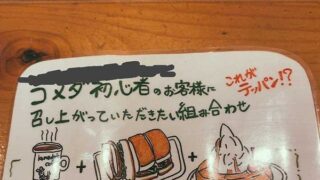 コメダ初心者のお客様に
これが
テッパン!?
召し上がっていただきたい組み合わせ